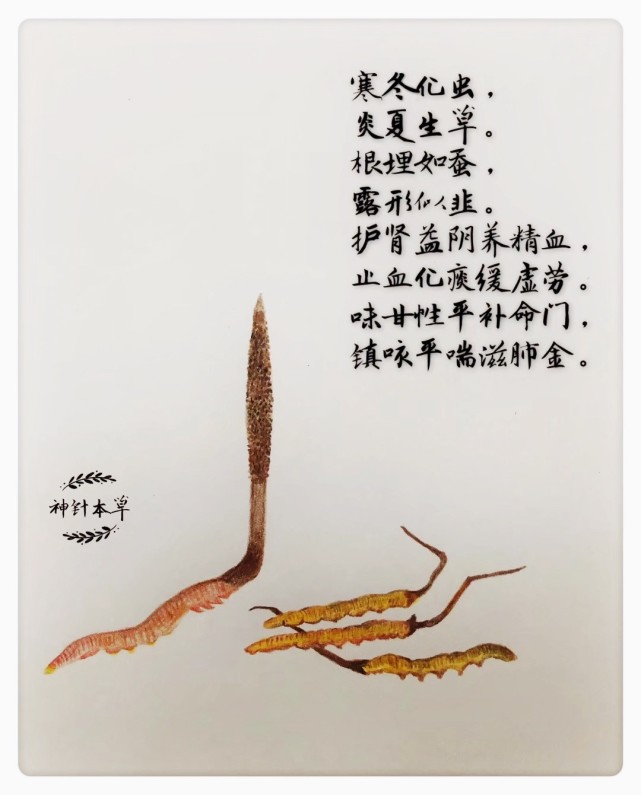 寒冬化虫，
炎夏生草。
根埋如蚕，
露形似韭。
护肾益阴养精血，
止血化痰缓虚劳。
味甘性平补命门，
镇咳平喘滋肺金。
神针本草